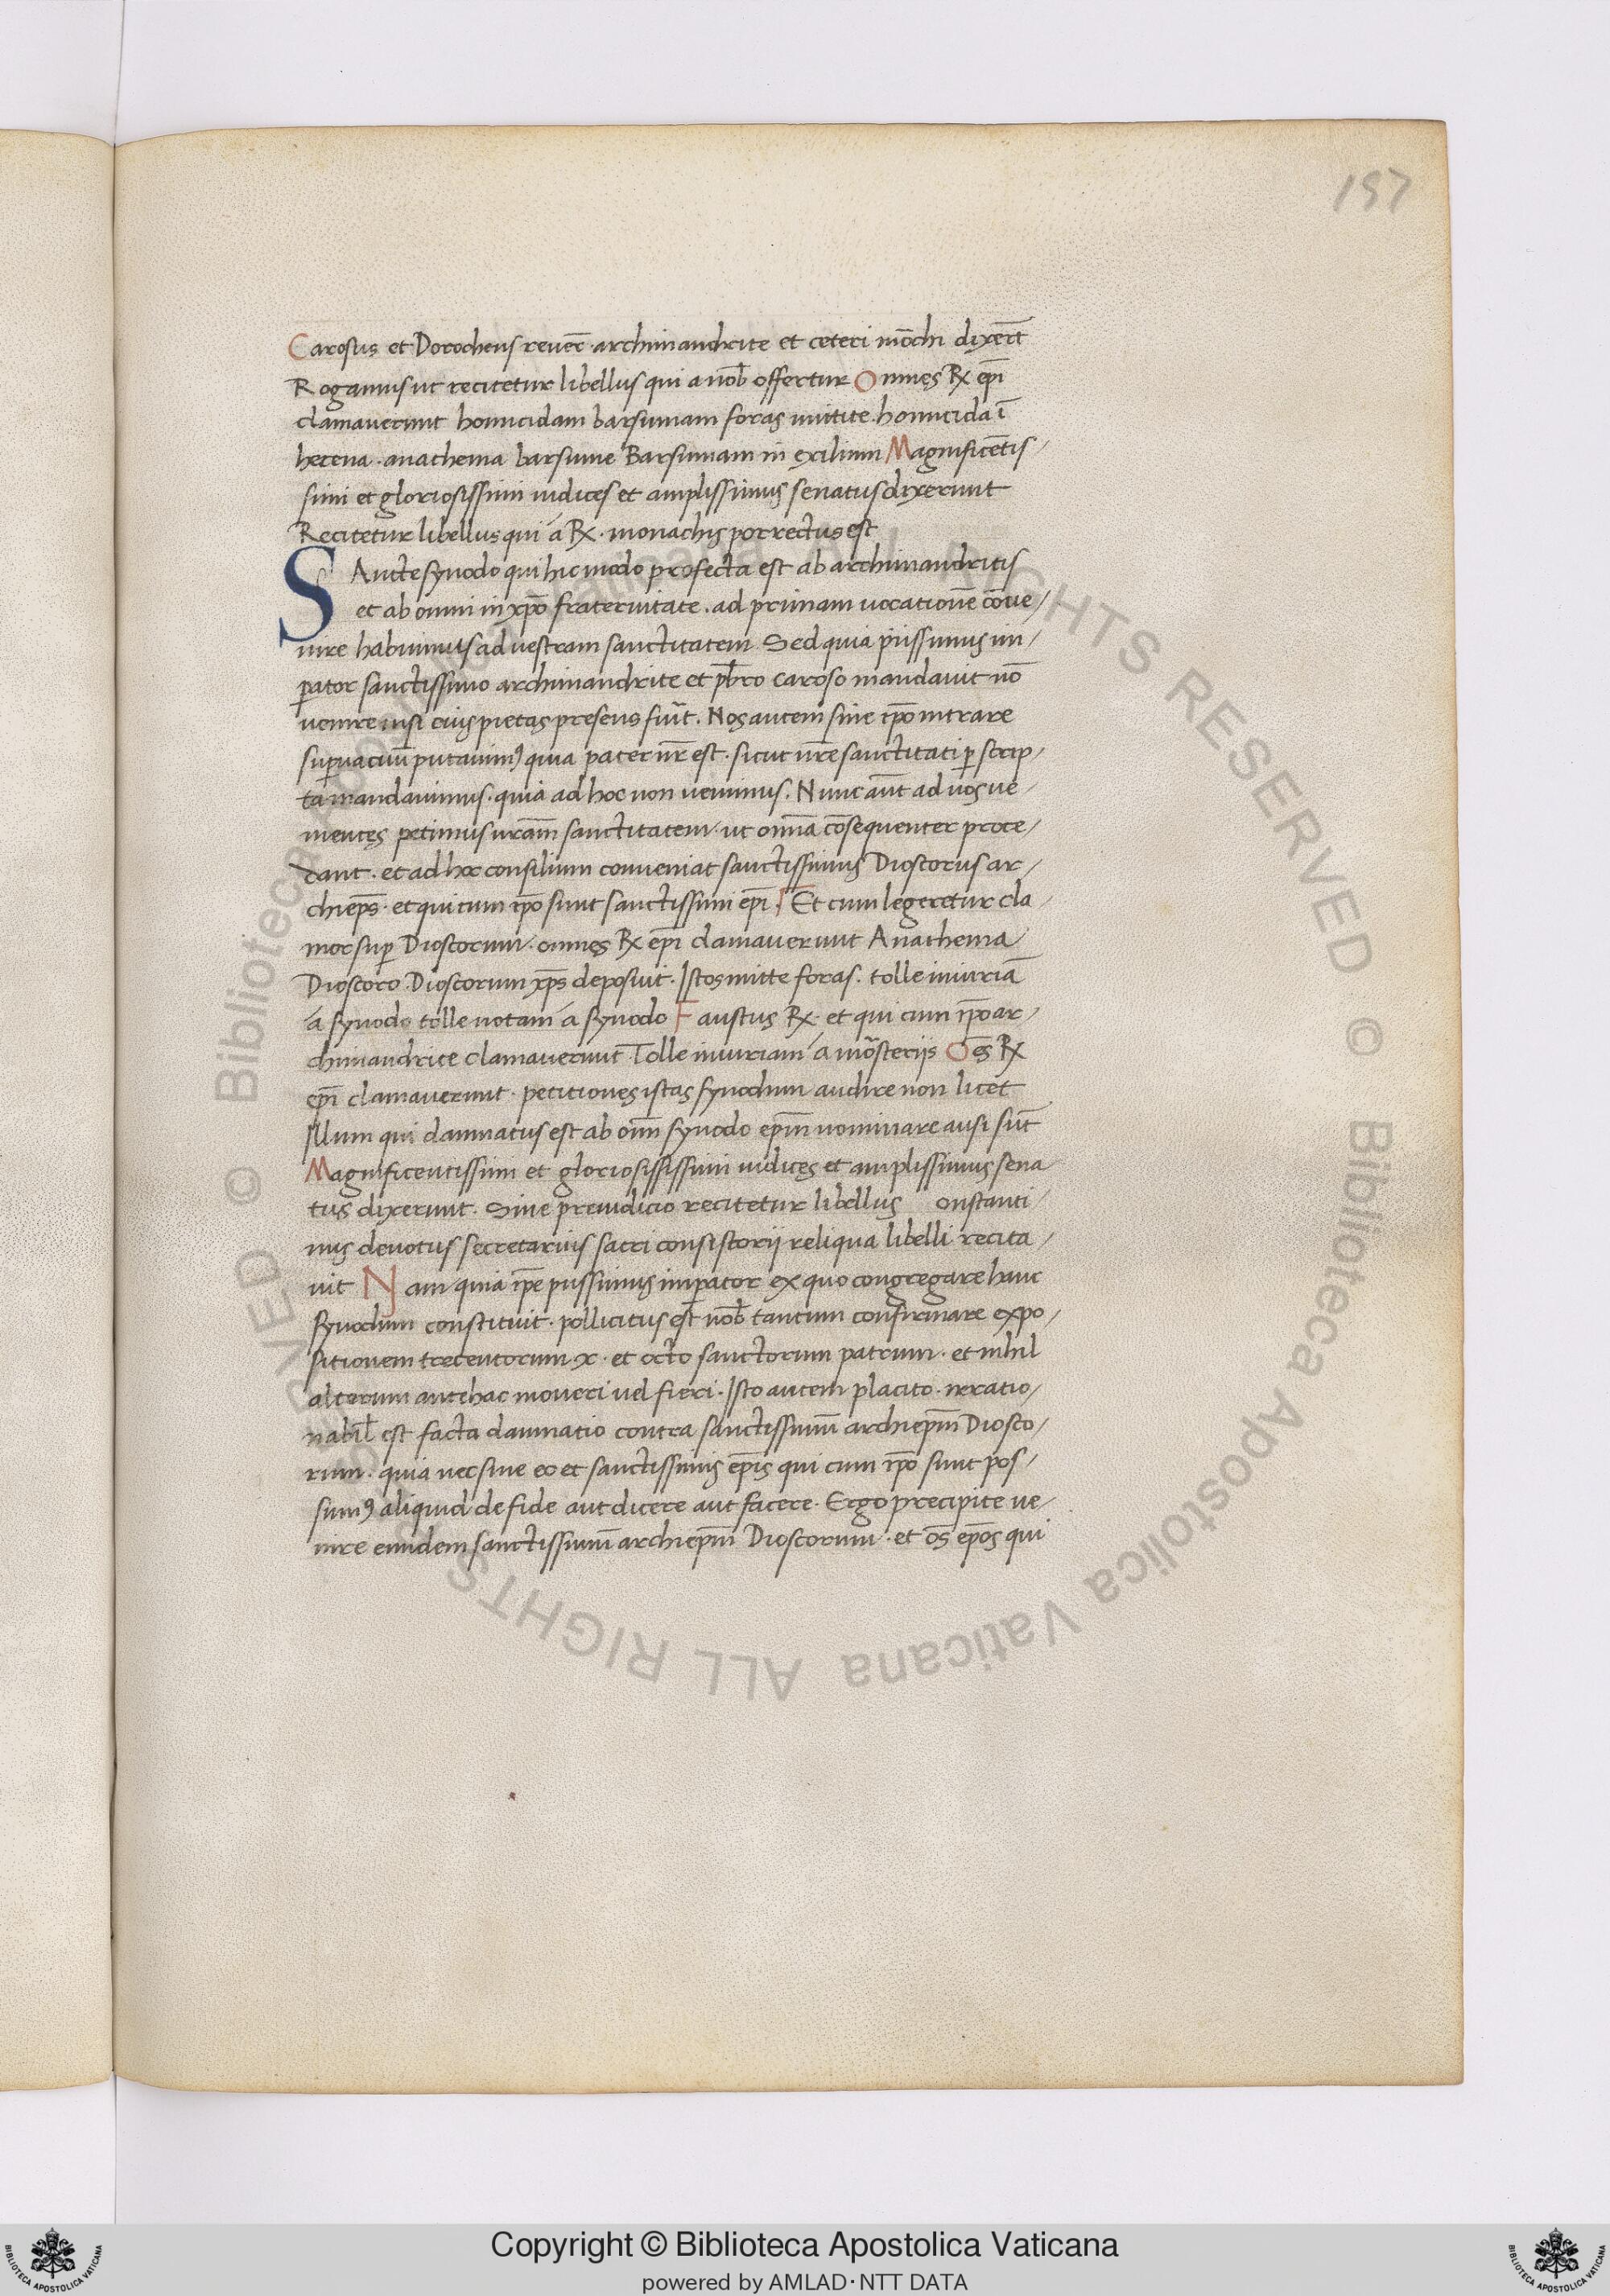 157
Carosus et Dorotheus reuer̅. archimandrite et ceteri mo̅chi dixer̅t
Rogamus ut recitetur libellus qui a nob̅ offertur Omnes Rx ep̅i
clamauerunt homicidam barsumam foras mittite. homicida ī
herena. anathema barsume Barsumam in exilium Magnifice̅tis/
simi et gloriosissimi iudices et amplissimus senatus dixerunt
Recitetur libellus qui á Rx. monachis porrectus est
SAncte synodo qui hic modo profecta est ab archimandritis
et ab omni in xp̅o fraternitate. ad primam uocatione̅ co̅ue/
nire habuimus ad uestram sanctitatem. Sed quia piissimus im/
perator sanctissimo archimandrite et pb̅ro Caroso mandauit no̅
uenire nisi eius pietas presens fu̅it. Nos autem sine ip̅o intrare
superuacuu̅ putauimꝰ quia pater nr̅ est. sicut ur̅e sanctitati per scrip/
ta mandauimus. quia ad hoc non uenimus. Nunc aut̅ ad uos ue/
nientes petimus ura̅m sanctitatem. ut omn̅a co̅sequenter proce/
dant. et ad hoc consilium conueniat sanctissimus Dioscorus ar/
chiep̅s. et qui cum ip̅o sunt sanctissimi ep̅i. Et cum legeretur cla/
mor super Dioscorum. omnes Rx ep̅i clamauerunt Anathema
Dioscoro. Dioscorum xp̅s deposuit. Istos mitte foras. tolle iniuria̅
á synodo tolle notam á synodo Faustus Rx. et qui cum ip̅o ar/
chimandrite clamauerunt Tolle iniuriam á mo̅steriis O̅es Rx
ep̅i clamauerunt. petitiones istas synodum audire non licet
Illum qui damnatus est ab om̅i synodo ep̅m nominare ausi su̅t
Magnificentissim et gloriosissisimi iudices et amplissimus sena
tus dixerunt. Sine preiudicio recitetur libellus onstanti/
nus deuotus secretarius sacri consistorii reliqua libelli recita/
uit Nam quia ip̅e piissimus imperator ex quo congregare hanc
synodum constituit. pollicitus est nob̅ tantum confirmare expo/
sitionem trecentorum. x. et octo sanctorum patrum. et nihil
alterum antehac moueri uel fieri. Isto autem placito. irratio/
nabil̅ est facta damnatio contra sanctissimu̅ archiep̅m Diosco/
rum. quia nec sine eo et sanctissimis ep̅is qui cum ip̅o sunt pos/
sumꝰ aliquid de fide aut dicere aut facere. Ergo precipite ue/
nire eundem sanctissimu̅ archiep̅m Dioscorum. et o̅s ep̅os qui
© Biblioteca Apostolica Vaticana ALL RIGHTS RESERVED © Biblioteca Apostolica Vaticana ALL RIGHTS RESERVED
Copyright © Biblioteca Apostolica Vaticana
powered by AMLAD·NTT DATA
BIBLIOTECA APOSTOLICA VATICANA
BIBLIOTECA APOSTOLICA VATICANA